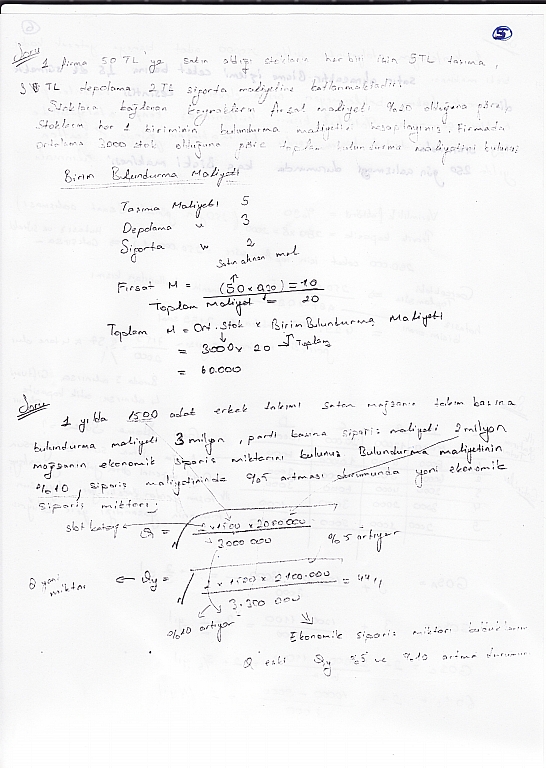 5
Soru 1 firma 50 TL'ye satın aldığı stokların her biri için 5TL taşıma,
3 TL depolama 2TL sigorta maliyetine katlanmaktadır.
Stoklara bağlanan kaynakların fırsat maliyeti %20 olduğuna göre
stokların her 1 biriminin bulundurma maliyetini hesaplayınız. Firmada
ortalama 3000 stok olduğuna göre toplam bulundurma maliyetini bulunuz
Birim Bulundurma Maliyeti
Taşıma Maliyeti 5
Depolama " 3
Sigorta " 2
Satın alınan mal
Fırsat M = (50x0,20) = 10
Toplam Maliyet = 20
Toplam M = Ort. Stok x Birim Bulundurma Maliyeti
= 3000 x 20 Toplam
= 60.000
Soru
1 yılda 1500 adet erkek takımı satan mağzanın takım başına
bulundurma maliyeti 3 milyon, parti başına sipariş maliyeti 2 milyon
mağzanın ekonomik sipariş miktarını bulunuz Bulundurma maliyetinin
%10, sipariş maliyetininde %5 artması durumunda yeni ekonomik
sipariş miktarı;
Q = √ 2x1500x2000000
3000 000
%5 artıyor
Q yeni miktarı ← Qy = √ 2 x 1500 x 2100.000 = 44,,
3.300 000
%10 artıyor
Ekonomik sipariş miktarı
Q eski Qy %5 ve %10 artma durumu